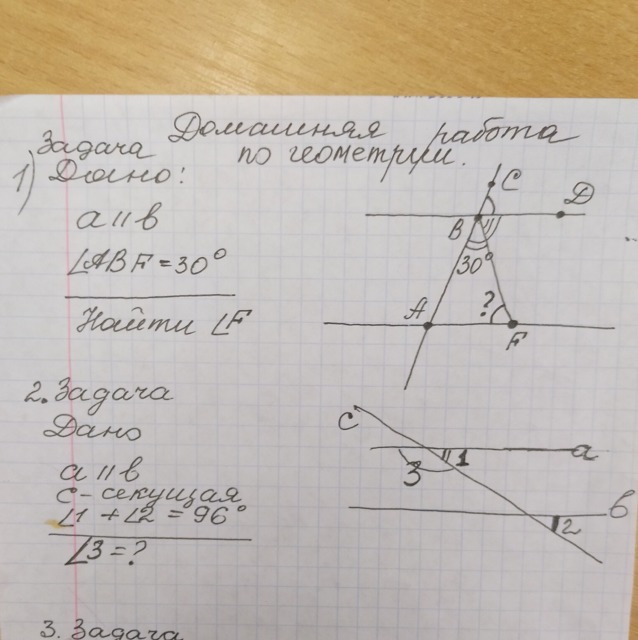 Домашняя работа
по геометрии.
Задача
1) Дано:
a || b
∠ABF = 30°
Найти ∠F
C
D
B
30°
A
?
F
2. Задача
Дано
a || b
c - секущая
∠1 + ∠2 = 96°
∠3 = ?
c
a
1
3
b
2
3. Задача